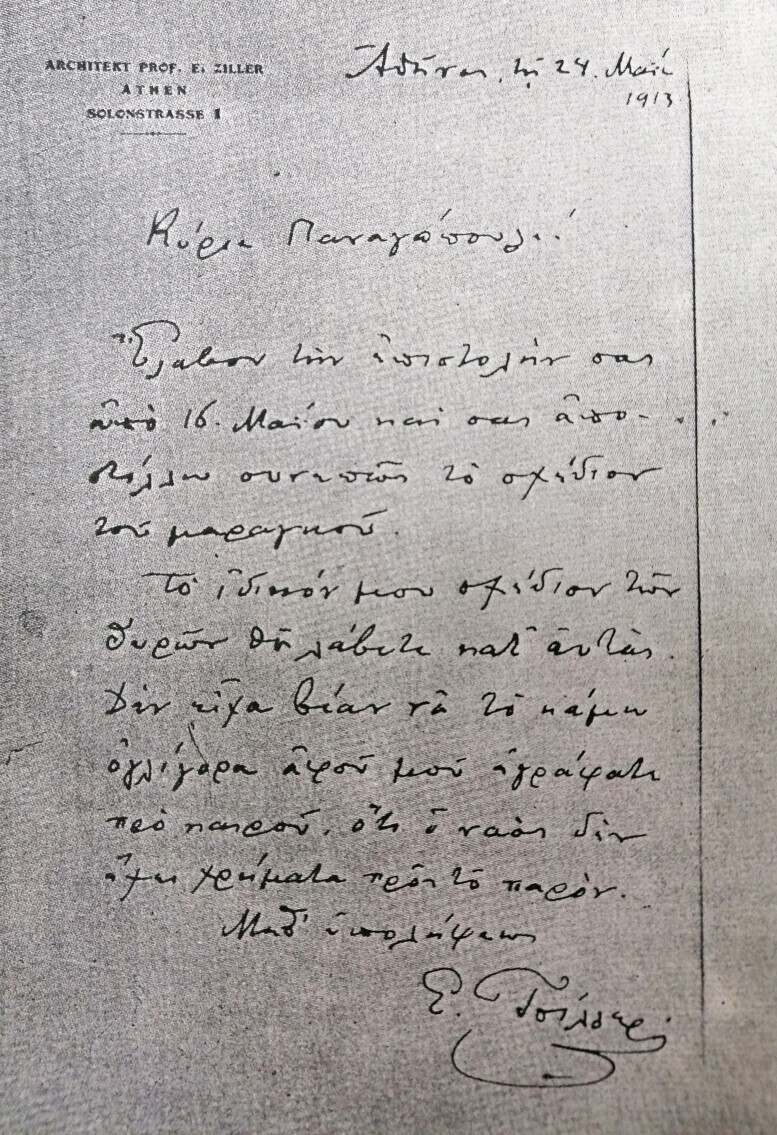 ARCHITEKT PROF. E. ZILLER
ATHEN
SOLONSTRASSE 1
Ἀθῆναι, τῇ 24. Μαΐ
1913
Κύριε Παναγόπουλε!
Ἔλαβον τὴν ἐπιστολήν σας
ἀπὸ 16. Μαΐου καὶ σας ἀπο-
στέλλω συνεπῶς τὸ σχέδιον
τοῦ μαραγκοῦ.
Τὸ ἰδικόν μου σχέδιον τῶν
θυρῶν θὰ λάβετε κατ' αὐτάς.
Δὲν εἶχα βίαν νὰ τὸ κάμω
ὀγλίγορα ἀφοῦ μοῦ ἐγράφατε
πρὸ καιροῦ, ὅτι ὁ ναὸς δὲν
ἔχει χρήματα πρὸς τὸ παρόν.
Μεθ' ὑπολήψεως
Ε. Τσίλλερ